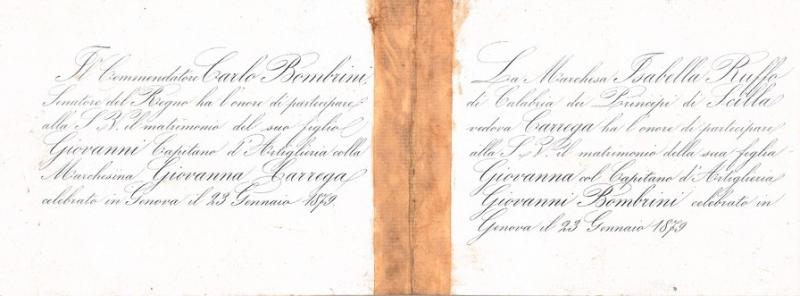 Il Commendatore Carlo Bombrini
Senatore del Regno ha l'onore di partecipare
alla S. V. il matrimonio del suo figlio
Giovanni Capitano d'Artiglieria colla
Marchesina Giovanna Carrega
celebrato in Genova il 23 Gennaio 1879
La Marchesa Isabella Ruffo
di Calabria dei Principi di Scilla
vedova Carrega ha l'onore di partecipare
alla S. V. il matrimonio della sua figlia
Giovanna col Capitano d'Artiglieria
Giovanni Bombrini celebrato in
Genova il 23 Gennaio 1879